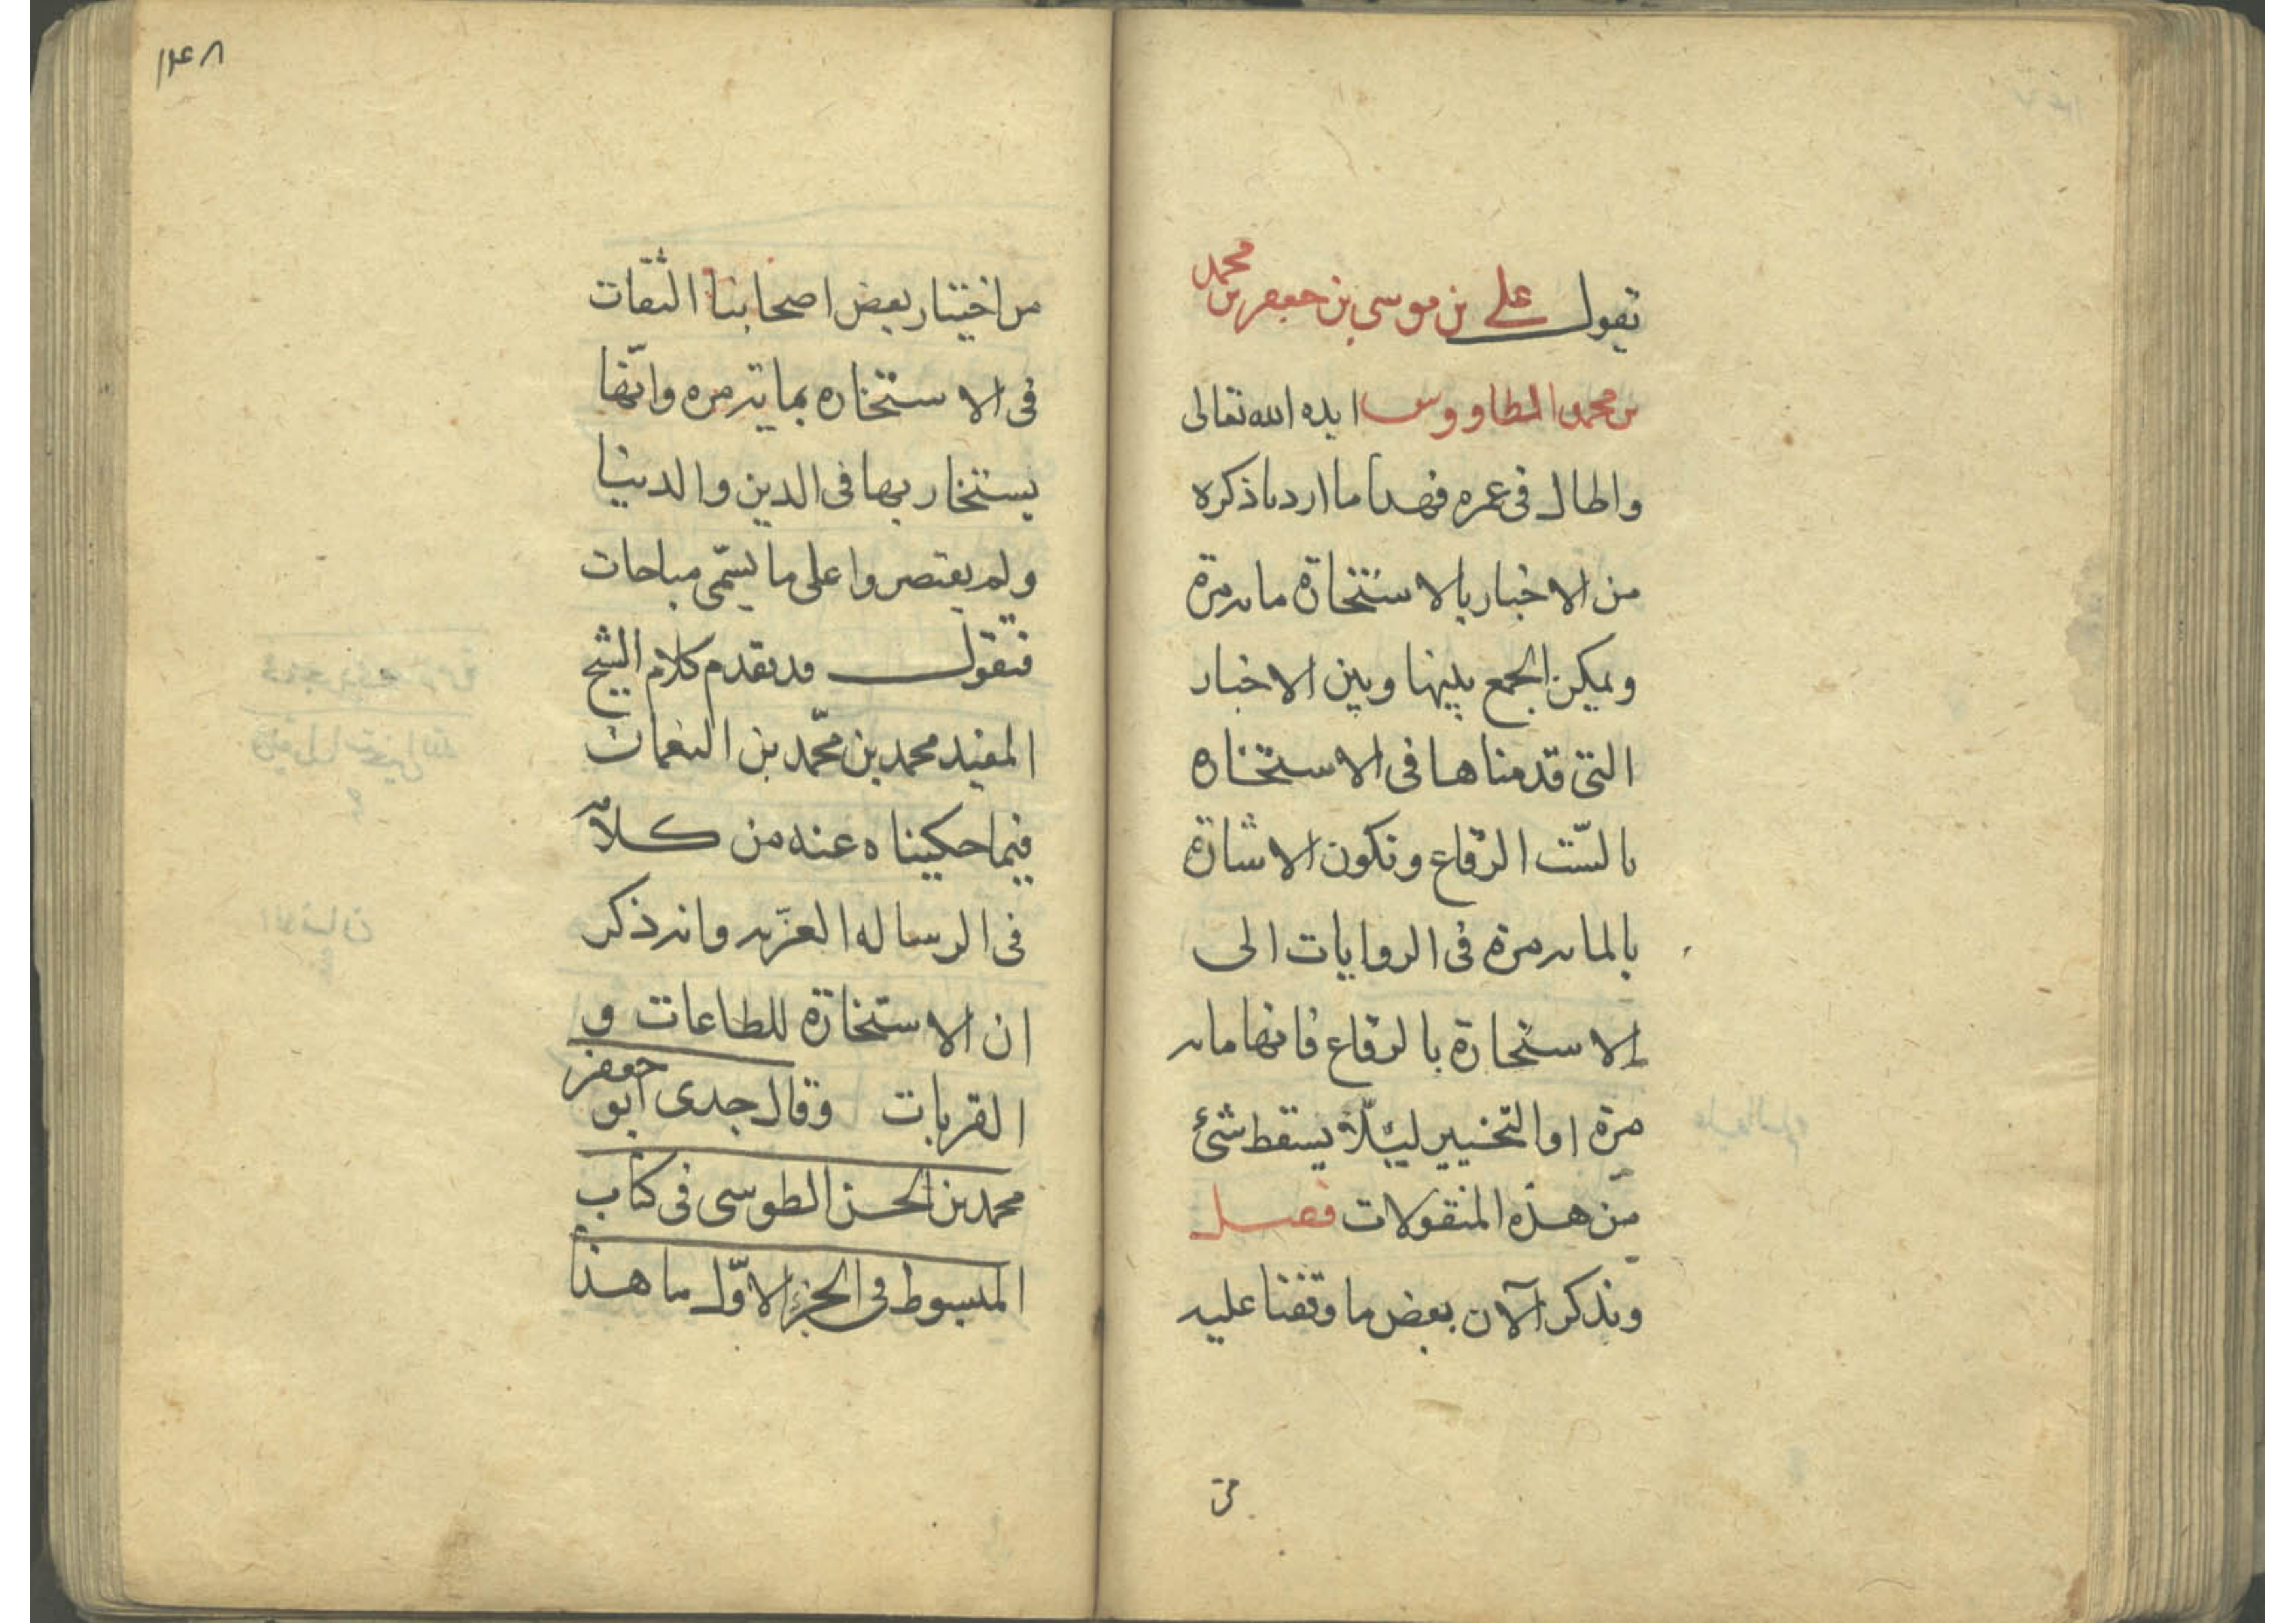 يقول علي بن موسى بن جعفر بن محمد
بن محمد الطاووس ايده الله تعالى
واطال فى عمره فهذا ما اردنا ذكره
من الاخبار بالاستخارة مايه مرة
ويمكن الجمع بينها وبين الاخبار
التى قدمناها فى الاستخاره
بالستّ الرقاع وتكون الاشارة
بالمايه مرة فى الروايات الى
الاستخارة بالرقاع فانها مايه
مرّة او التخيير ليلّا يسقط شئ
من هذه المنقولات فصل
ونذكر الآن بعض ما وقفنا عليه
من
١٤٨
من اختيار بعض اصحابنا الثقات
فى الاستخاره بمايه مره وانّها
يستخار بها فى الدين والدنيا
ولم يقتصروا على ما يسمّى مباحات
فنقول قد تقدم كلام الشيخ
المفيد محمد بن محمّد بن النعمان
فيما حكيناه عنه من كلامه
فى الرساله العزّيه وانه ذكر
ان الاستخارة للطاعات و
القربات وقال جدى ابو جعفر
محمد بن الحسن الطوسى فى كتاب
المبسوط فى الجزء الاوّل ما هذا